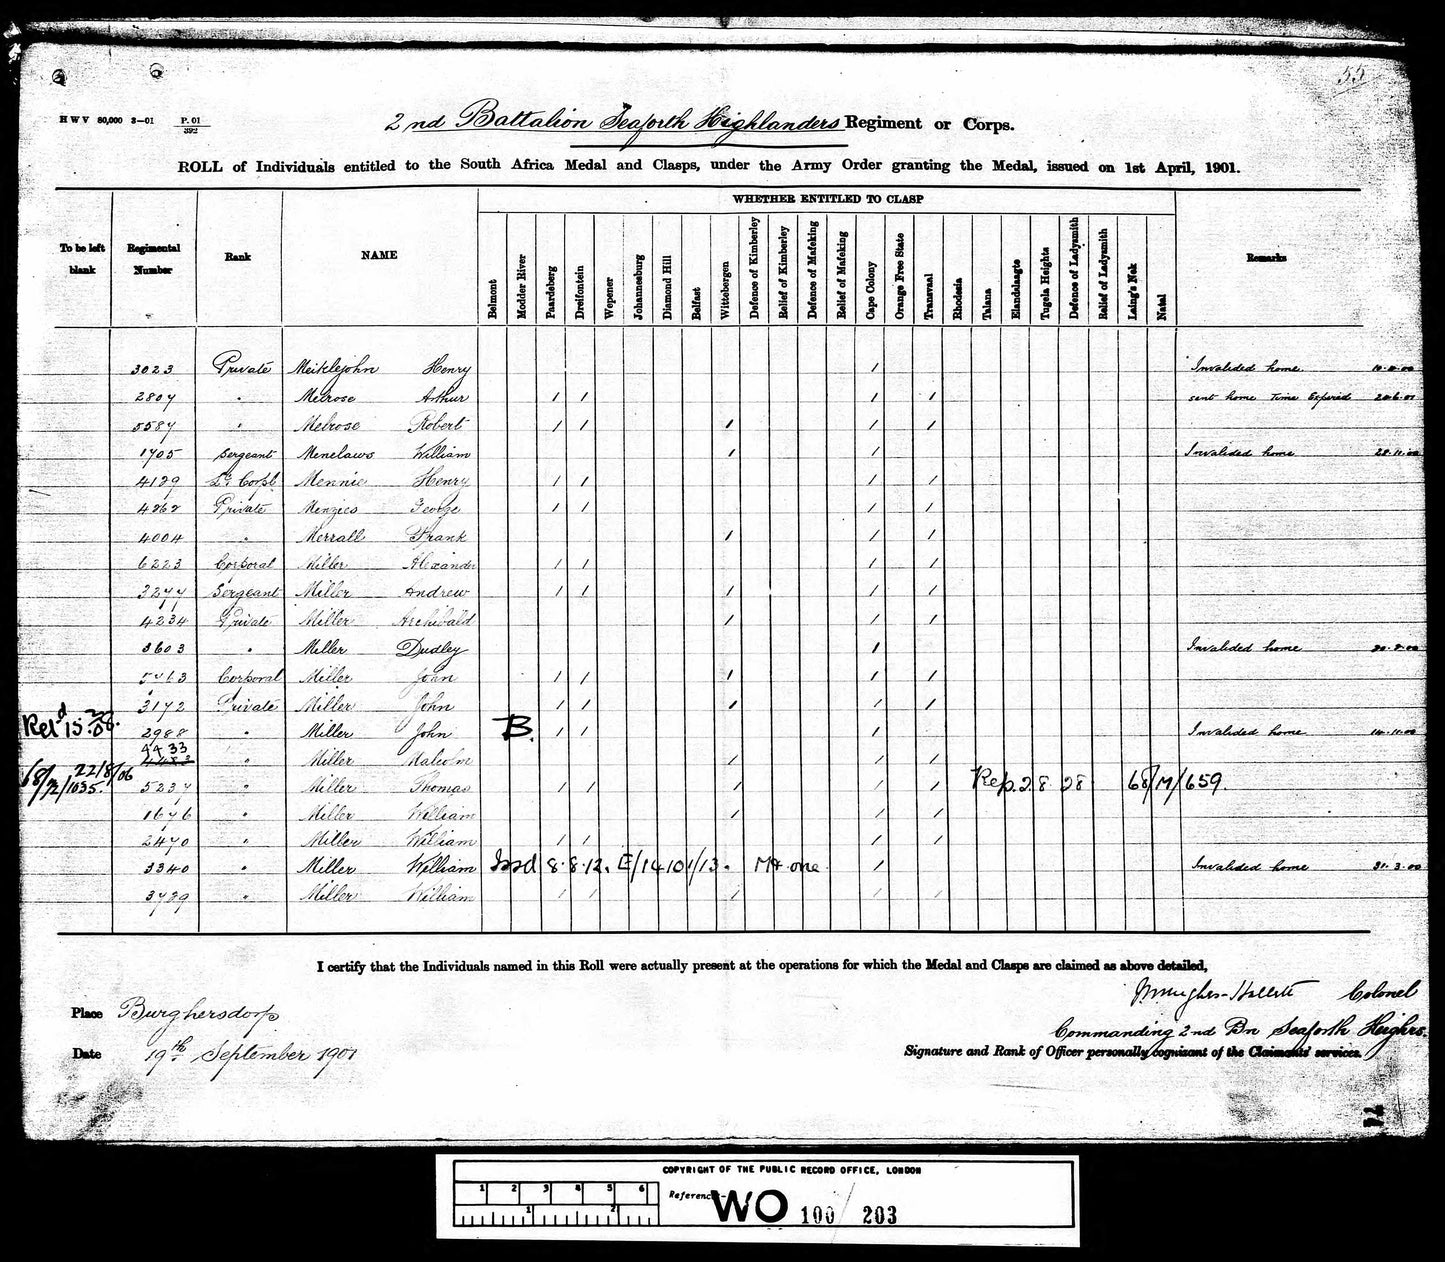 55
H W V 80,000 3—01 P. 01 / 392
2nd Battalion Seaforth Highlanders Regiment or Corps.
ROLL of Individuals entitled to the South Africa Medal and Clasps, under the Army Order granting the Medal, issued on 1st April, 1901.
WHETHER ENTITLED TO CLASP
To be left blank
Regimental Number
Rank
NAME
Belmont
Modder River
Paardeberg
Dreifontein
Wepener
Johannesburg
Diamond Hill
Belfast
Wittebergen
Defence of Kimberley
Relief of Kimberley
Defence of Mafeking
Relief of Mafeking
Cape Colony
Orange Free State
Transvaal
Rhodesia
Talana
Elandslaagte
Tugela Heights
Defence of Ladysmith
Relief of Ladysmith
Laing's Nek
Natal
Remarks
3023 Private Meiklejohn Henry / Invalided home.
2807 " Melrose Arthur / / / / sent home Time Expired
5587 " Melrose Robert / / / / /
1705 Sergeant Menelaws William / / Invalided home 28.11.00
4129 Lc Corpl Mennie Henry / / / /
4262 Private Menzies George / / / /
4004 " Merrall Frank / / /
6223 Corporal Miller Alexander / / / /
3277 Sergeant Miller Andrew / / / / /
4234 Private Miller Archibald / / /
3603 " Miller Dudley / Invalided home
5463 Corporal Miller John / / / / /
3172 Private Miller John / / / / /
Retd 15.2/08. 2988 " Miller John B. / / / Invalided home 14.11.00
4433 " Miller Malcolm / / /
68/M/1035. 22/8/06 5237 " Miller Thomas / / / / / Rep. 2.8.28 68/M/659.
1676 " Miller William / / /
2470 " Miller William / / / /
3340 " Miller William Issd 8.8.12. E/14101/13. Mt one / Invalided home 31.3.00
3789 " Miller William / / / / /
I certify that the Individuals named in this Roll were actually present at the operations for which the Medal and Clasps are claimed as above detailed,
Hughes-Hallett Colonel
Place Burghersdorp
Commanding 2nd Bn Seaforth Highrs.
Date 19th September 1901
Signature and Rank of Officer personally cognizant of the Claimants' services.
COPYRIGHT OF THE PUBLIC RECORD OFFICE, LONDON
1 2 3 4 5 6
Reference:-
WO 100/203
1 2